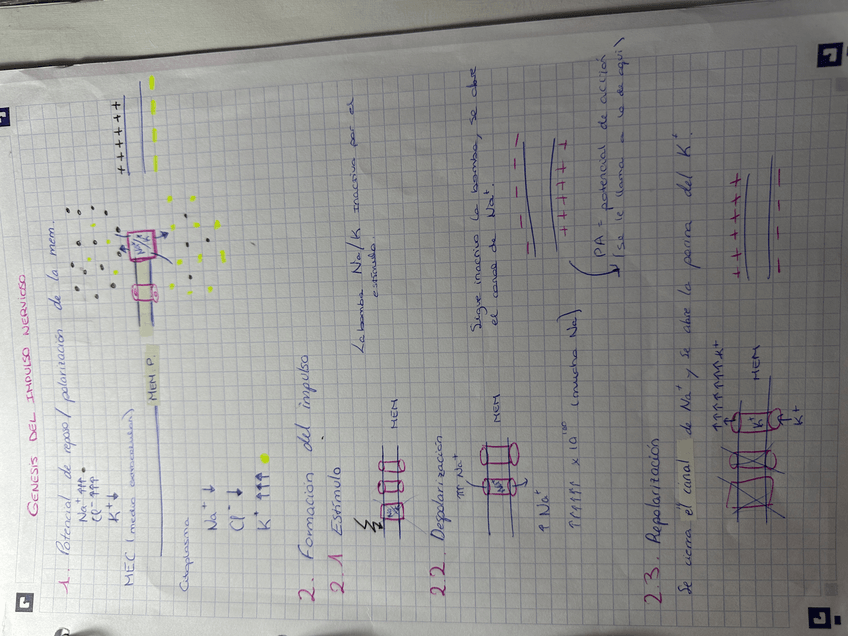 GENESIS DEL IMPULSO NERVIOSO
1. Potencial de reposo / polarización de la mem.
Na⁺ ↑↑↑
Cl⁻ ↑↑↑
K⁺ ↓
MEC (medio extracelular)
++++++
MEM P.
Na⁺/K⁺
------
Citoplasma
Na⁺ ↓
Cl⁻ ↓
K⁺ ↑↑↑
2. Formación del impulso
2.1 Estímulo
La bomba Na/K inactiva por el
estímulo.
Na/K
MEM
2.2. Depolarización
Sigue inactivo la bomba, se abre
el canal de Na⁺.
↑↑↑ Na⁺
Na⁺
MEM
↑ Na⁺
------
++++++
↑↑↑↑↑↑ x 10¹⁰⁰ (mucho Na)
PA = potencial de acción
(se le llama a lo de aquí)
2.3. Repolarización
Se cierra el canal de Na⁺ y se abre la porina del K⁺.
↑↑↑↑↑↑↑ K⁺
K⁺
MEM
↑ K⁺
++++++